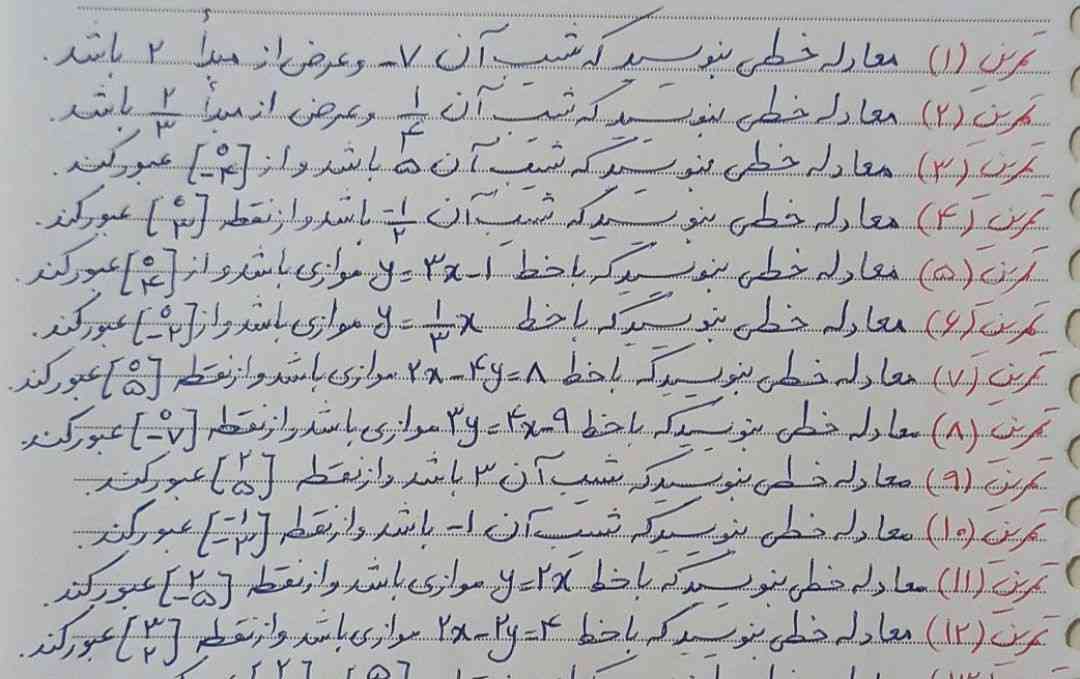 تمرین (۱) معادله خطی بنویسید که شیب آن ۷- و عرض از مبدأ ۲ باشد.
تمرین (۲) معادله خطی بنویسید که شیب آن ۱/۴ و عرض از مبدأ ۲/۳ باشد.
تمرین (۳) معادله خطی بنویسید که شیب آن ۵ باشد و از [۰ -۴] عبور کند.
تمرین (۴) معادله خطی بنویسید که شیب آن -۱/۲ باشد و از نقطه [۰ ۳] عبور کند.
تمرین (۵) معادله خطی بنویسید که با خط y=۳x-۱ موازی باشد و از [۰ ۴] عبور کند.
تمرین (۶) معادله خطی بنویسید که با خط y=۱/۳x موازی باشد و از [۰ -۲] عبور کند.
تمرین (۷) معادله خطی بنویسید که با خط ۲x-۴y=۸ موازی باشد و از نقطه [۰ ۵] عبور کند.
تمرین (۸) معادله خطی بنویسید که با خط ۳y=۴x-۹ موازی باشد و از نقطه [۰ -۷] عبور کند.
تمرین (۹) معادله خطی بنویسید که شیب آن ۳ باشد و از نقطه [۲ ۵] عبور کند.
تمرین (۱۰) معادله خطی بنویسید که شیب آن ۱- باشد و از نقطه [-۱ -۳] عبور کند.
تمرین (۱۱) معادله خطی بنویسید که با خط y=۲x موازی باشد و از نقطه [۲ -۵] عبور کند.
تمرین (۱۲) معادله خطی بنویسید که با خط ۲x-۲y=۴ موازی باشد و از نقطه [۳ ۲] عبور کند.